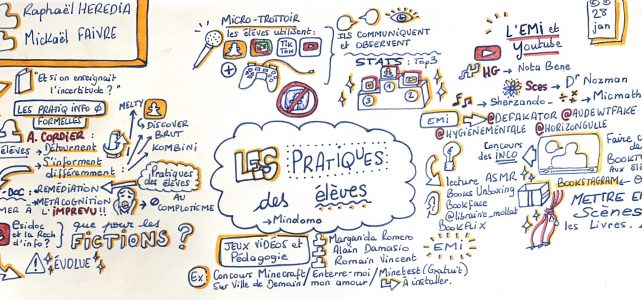 Raphaël HEREDIA
Mickaël FAIVRE
"Et si on enseignait
l'incertitude?"
LES PRATIQ INFO
FORMELLES
A. CORDIER :
élèves → Détournent
S'informent
différemment
Doc → REMÉDIATION
MÉTACOGNITION
MER À L'IMPRÉVU!!
Esidoc et la Rech
d'info?
que pour les
FICTIONS?
ÉVOLUE
MELTY
DISCOVER
BRUT
KOMBINI
Pratiques
des élèves
AU
COMPLOTISME
MICRO-TROTTOIR
les élèves utilisent:
TIK
TOK
ILS COMMUNIQUENT
et OBSERVENT
STATS : Top3
1
2
3
LES PRATIQUES
des élèves
→ Mindomo
JEUX VIDÉOS et
Pédagogie
Margarida Romero
Alain Damasio
Romain Vincent
Ex: Concours Minecraft / Enterre-moi / Minetest (Gratuit)
Sur Ville de Demain / mon amour / À installer.
L'EMI et
Youtube
28
jan
HG → Nota Bene
Sces → Dr Nozman
Sherzando → Micmath
EMI → @DEFAKATOR @AUDEWTFAKE
@HYGIENEMENTALE @HORIZONGULLE
Concours
des INCO
Faire
BOOKSTAGRAM
lecture ASMR
Books Unboxing
Bookface
@librairie_mollat
BOOKFLIX
EMI
METTRE EN
Scène
les Livres.